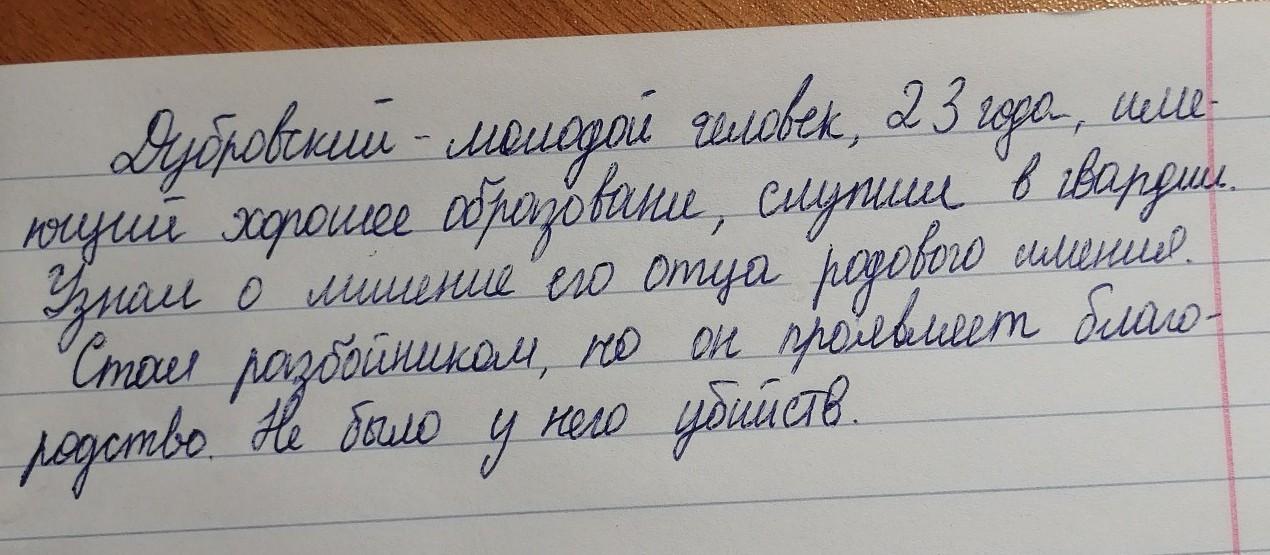 Дубровский - молодой человек, 23 года, име-
ющий хорошее образование, служил в гвардии.
Узнал о лишение его отца родового имения.
Стал разбойником, но он проявляет благо-
родство. Не было у него убийств.